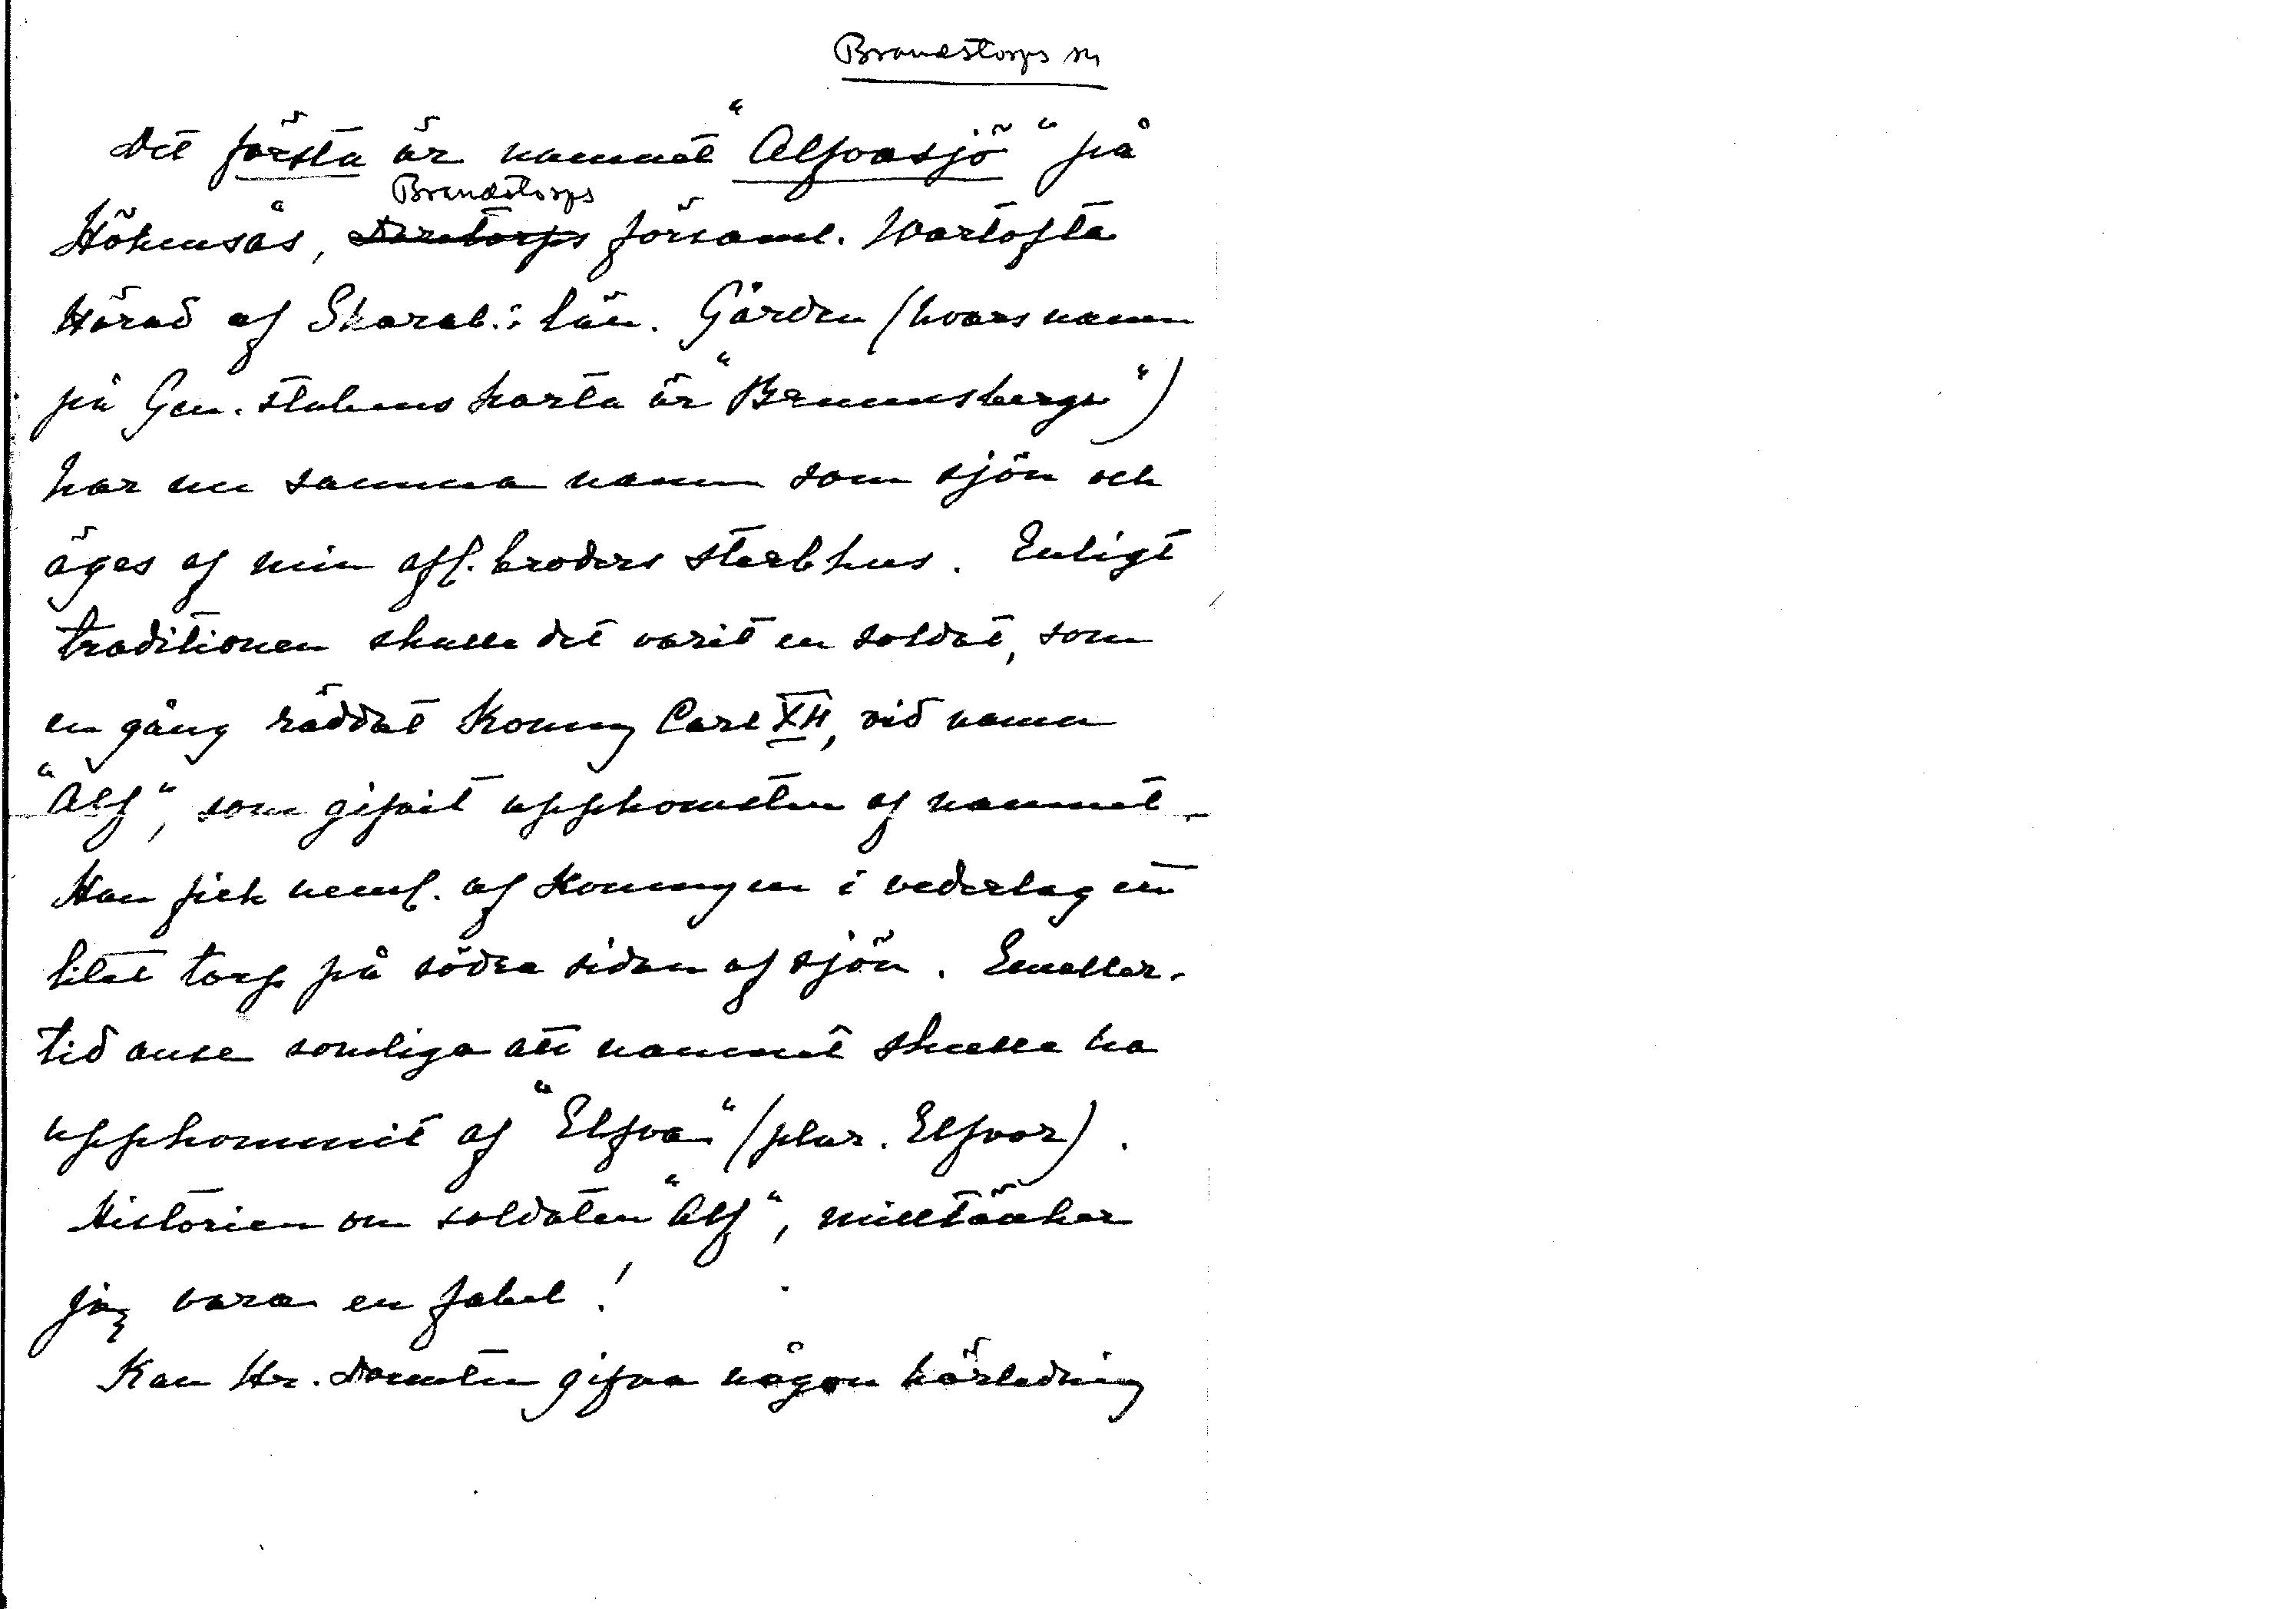 Brandstorps sn
Det första är namnet "Alfvasjö" på
Brandstorps
Hökensås, Daretorps församl. Wartofta
Härad af Skarab:s län. Gården (hvars namn
på Gen. stabens karta är "Brummsberga")
har nu samma namn som sjön och
äges af min afl. broders sterbhus. Enligt
traditionen skulle det varit en soldat, som
en gång räddat Konung Carl XII, vid namn
"Alf", som gifvit upphomsten af namnet.
Han fick neml. af Konungen i vederlag ett
litet torp på södra sidan af sjön. Emeller-
tid anse somliga att namnet skulle ha
uppkommit af "Elfva" (plur. Elfvor).
Historien om soldaten "Alf", misstänker
jag vara en fabel!
Kan Hr. gifva någon härledning